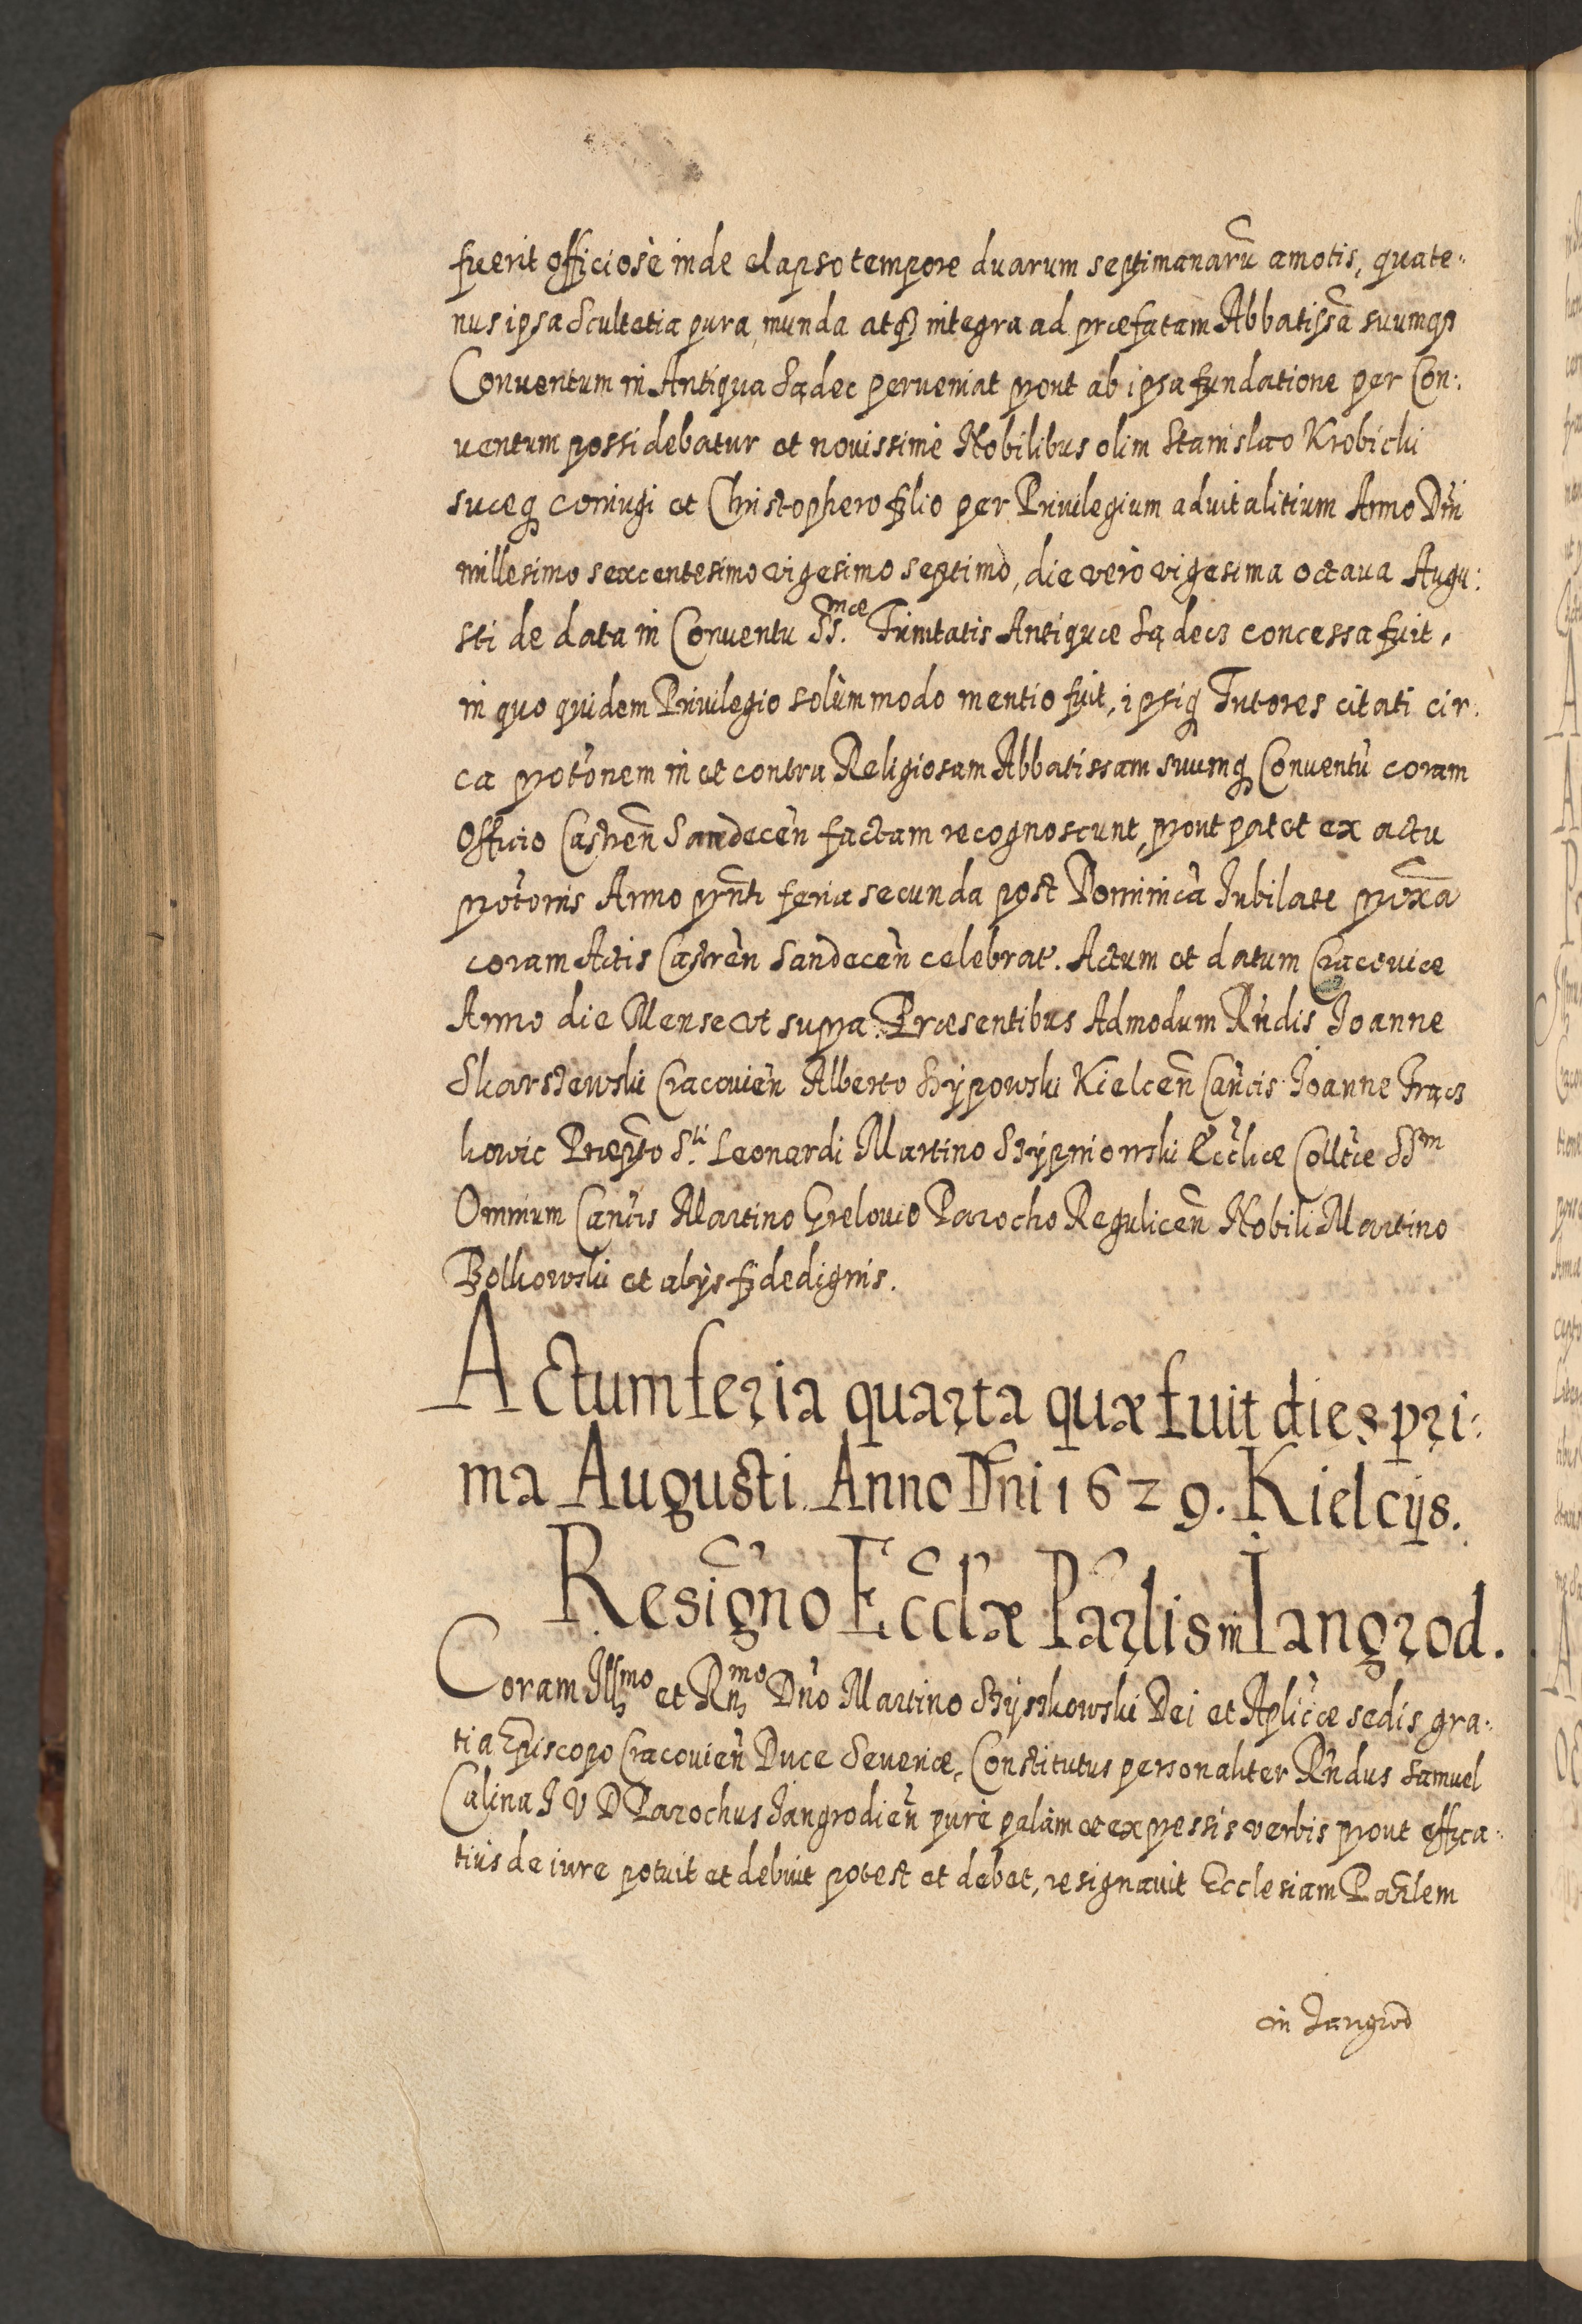 fuerit officiosè inde elapso tempore duarum septimanarũ amotis, quate⸗
nus ipsa Scultetia pura, munda atq̃ integra ad præfatam Abbatissã suumq̃
Conuentum in Antiqua Sądec perueniat prout ab ipsa fundatione per Con:
uentum possidebatur et nouissimè Nobilibus olim Stanislao Krobicki
suæq coniugi et Christophero filio per Priuilegium aduitalitium Anno Dni
millesimo sexcentesimo vigesimo septimo, die verò vigesima octaua Augu:
sti de data in Conuentu SS.mæ Trinitatis Antiquæ Sądecz concessa fuit,
in quo quidem Priuilegio solùmmodo mentio fuit, ipsiq Tutores citati cir:
ca protõnem in et contra Religiosam Abbatissam suumq Conuentũ coram
Officio Castreñ Sandeceñ factam recognoscunt, prout patet ex actu
protonis Anno prñti feria secunda post Dominicã Iubilate proxã
coram Actis Castreñ Sandeceñ celebrat. Actum et datum Cracouiæ
Anno die Mense vt supra. Præsentibus Admodum Rñdis Joanne
Skarszewski Cracouieñ Alberto Szÿpowski Kielceñ Cañcis Joanne Trącz
kowic Præpto S.ti Leonardi Martino Szÿpniowski Ecclíæ Colltæ SSm
Omnium Cañcis Martino Grelouio Parocho Reguliceñ Nobili Martino
Bolkowski et alÿs fidedignis.
Actum feria quarta quæ fuit dies pri:
ma Augusti Anno Dñi 1629. Kielcÿs.
Resigño Ecclæ Parlis in Iangrod.
Coram Illmo et Rñmo Dño Martino Szÿszkowski Dei et Aplicæ sedis gra:
tia Episcopo Cracouieñ Duce Seueriæ, Constitutus personaliter Rñdus Samuel
Calina I V D Parochus Iangrodieñ purè palàm et expressis verbis prout effica:
tiùs de iure potuit et debuit potest et debet, resignauit Ecclesiam Parlem
in Iangrod